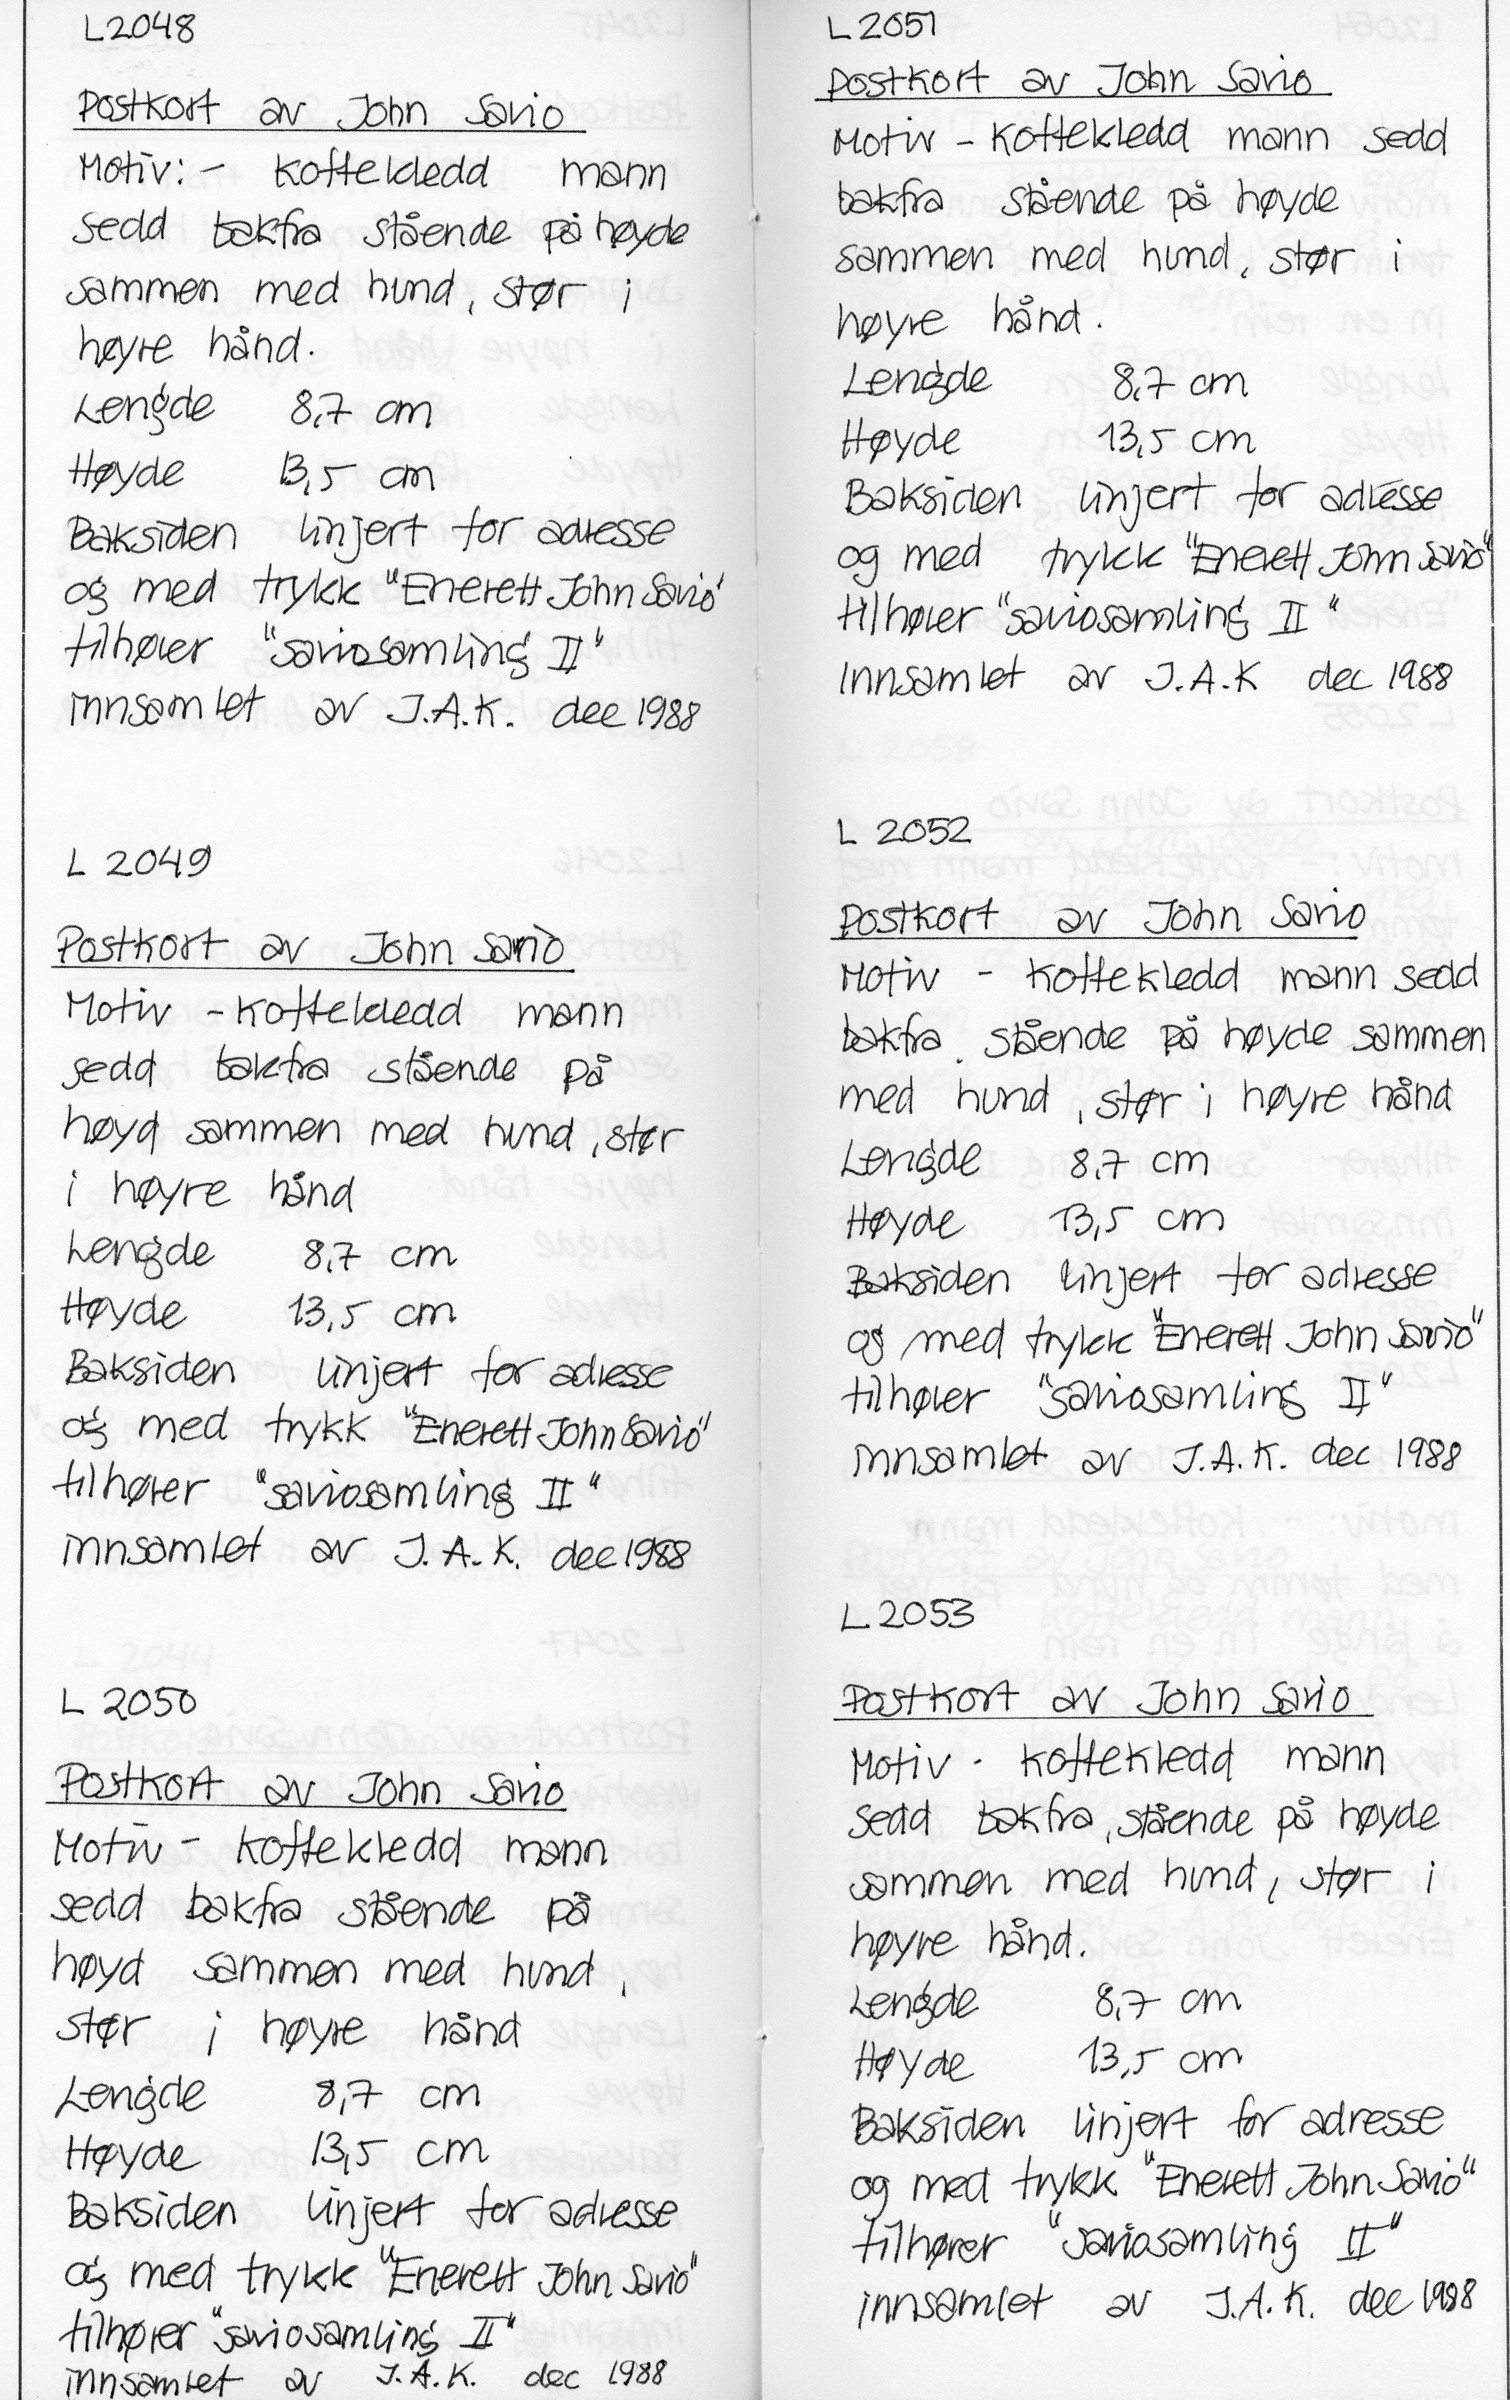 L2048
Postkort av John Savio
Motiv:- Koftekledd mann
sedd bakfra stående på høyde
sammen med hund, stør i
høyre hånd.
Lengde 8,7 cm
Høyde 13,5 cm
Baksiden linjert for adresse
og med trykk "Enerett John Savio"
tilhører "saviosamling II"
innsamlet av J.A.K. dec 1988
L 2049
Postkort av John Savio
Motiv - Koftekledd mann
sedd bakfra stående på
høyd sammen med hund, stør
i høyre hånd
Lengde 8,7 cm
Høyde 13,5 cm
Baksiden linjert for adresse
og med trykk "Enerett John Savio"
tilhører "saviosamling II"
innsamlet av J.A.K. dec 1988
L 2050
Postkort av John Savio
Motiv - Koftekledd mann
sedd bakfra stående på
høyd sammen med hund,
stør i høyre hånd
Lengde 8,7 cm
Høyde 13,5 cm
Baksiden linjert for adresse
og med trykk "Enerett John Savio"
tilhører "saviosamling II"
innsamlet av J.A.K. dec 1988
L2051
Postkort av John Savio
Motiv - Koftekledd mann sedd
bakfra stående på høyde
sammen med hund, stør i
høyre hånd.
Lengde 8,7 cm
Høyde 13,5 cm
Baksiden linjert for adresse
og med trykk "Enerett John Savio"
tilhører "saviosamling II"
Innsamlet av J.A.K dec 1988
L 2052
Postkort av John Savio
Motiv - Koftekledd mann sedd
bakfra. stående på høyde sammen
med hund, stør i høyre hånd
Lengde 8,7 cm
Høyde 13,5 cm
Baksiden linjert for adresse
og med trykk "Enerett John Savio"
tilhører "saviosamling II"
innsamlet av J.A.K. dec 1988
L 2053
Postkort av John Savio
Motiv - Koftekledd mann
sedd bakfra, stående på høyde
sammen med hund, stør i
høyre hånd.
Lengde 8,7 cm
Høyde 13,5 cm
Baksiden linjert for adresse
og med trykk "Enerett John Savio"
tilhører "saviosamling II"
innsamlet av J.A.K. dec 1988